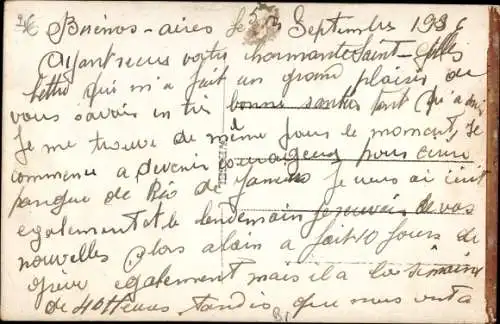 Buénos-aires le 5 Septembre 1936
Ayant reçus votre charmante Saint-Gilles
lettre qui m'a fait un grand plaisir de
vous savoir en très bonne santer tant qu'a moi
je me trouve de même pour le moment, je
commence a devenir courageux pour écrire
puisque de Rio de Janeiro je vous ai écrit
egalement et le lendemain je reçevais de vos
nouvelles alors alain a fait 10 jours de
grève également mais il a les semaines
de 40 Heures tandis que nous ont a